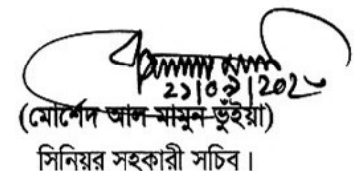 ২১|০৯|202৮
(মোর্শেদ আল মামুন ভুঁইয়া)
সিনিয়র সহকারী সচিব।